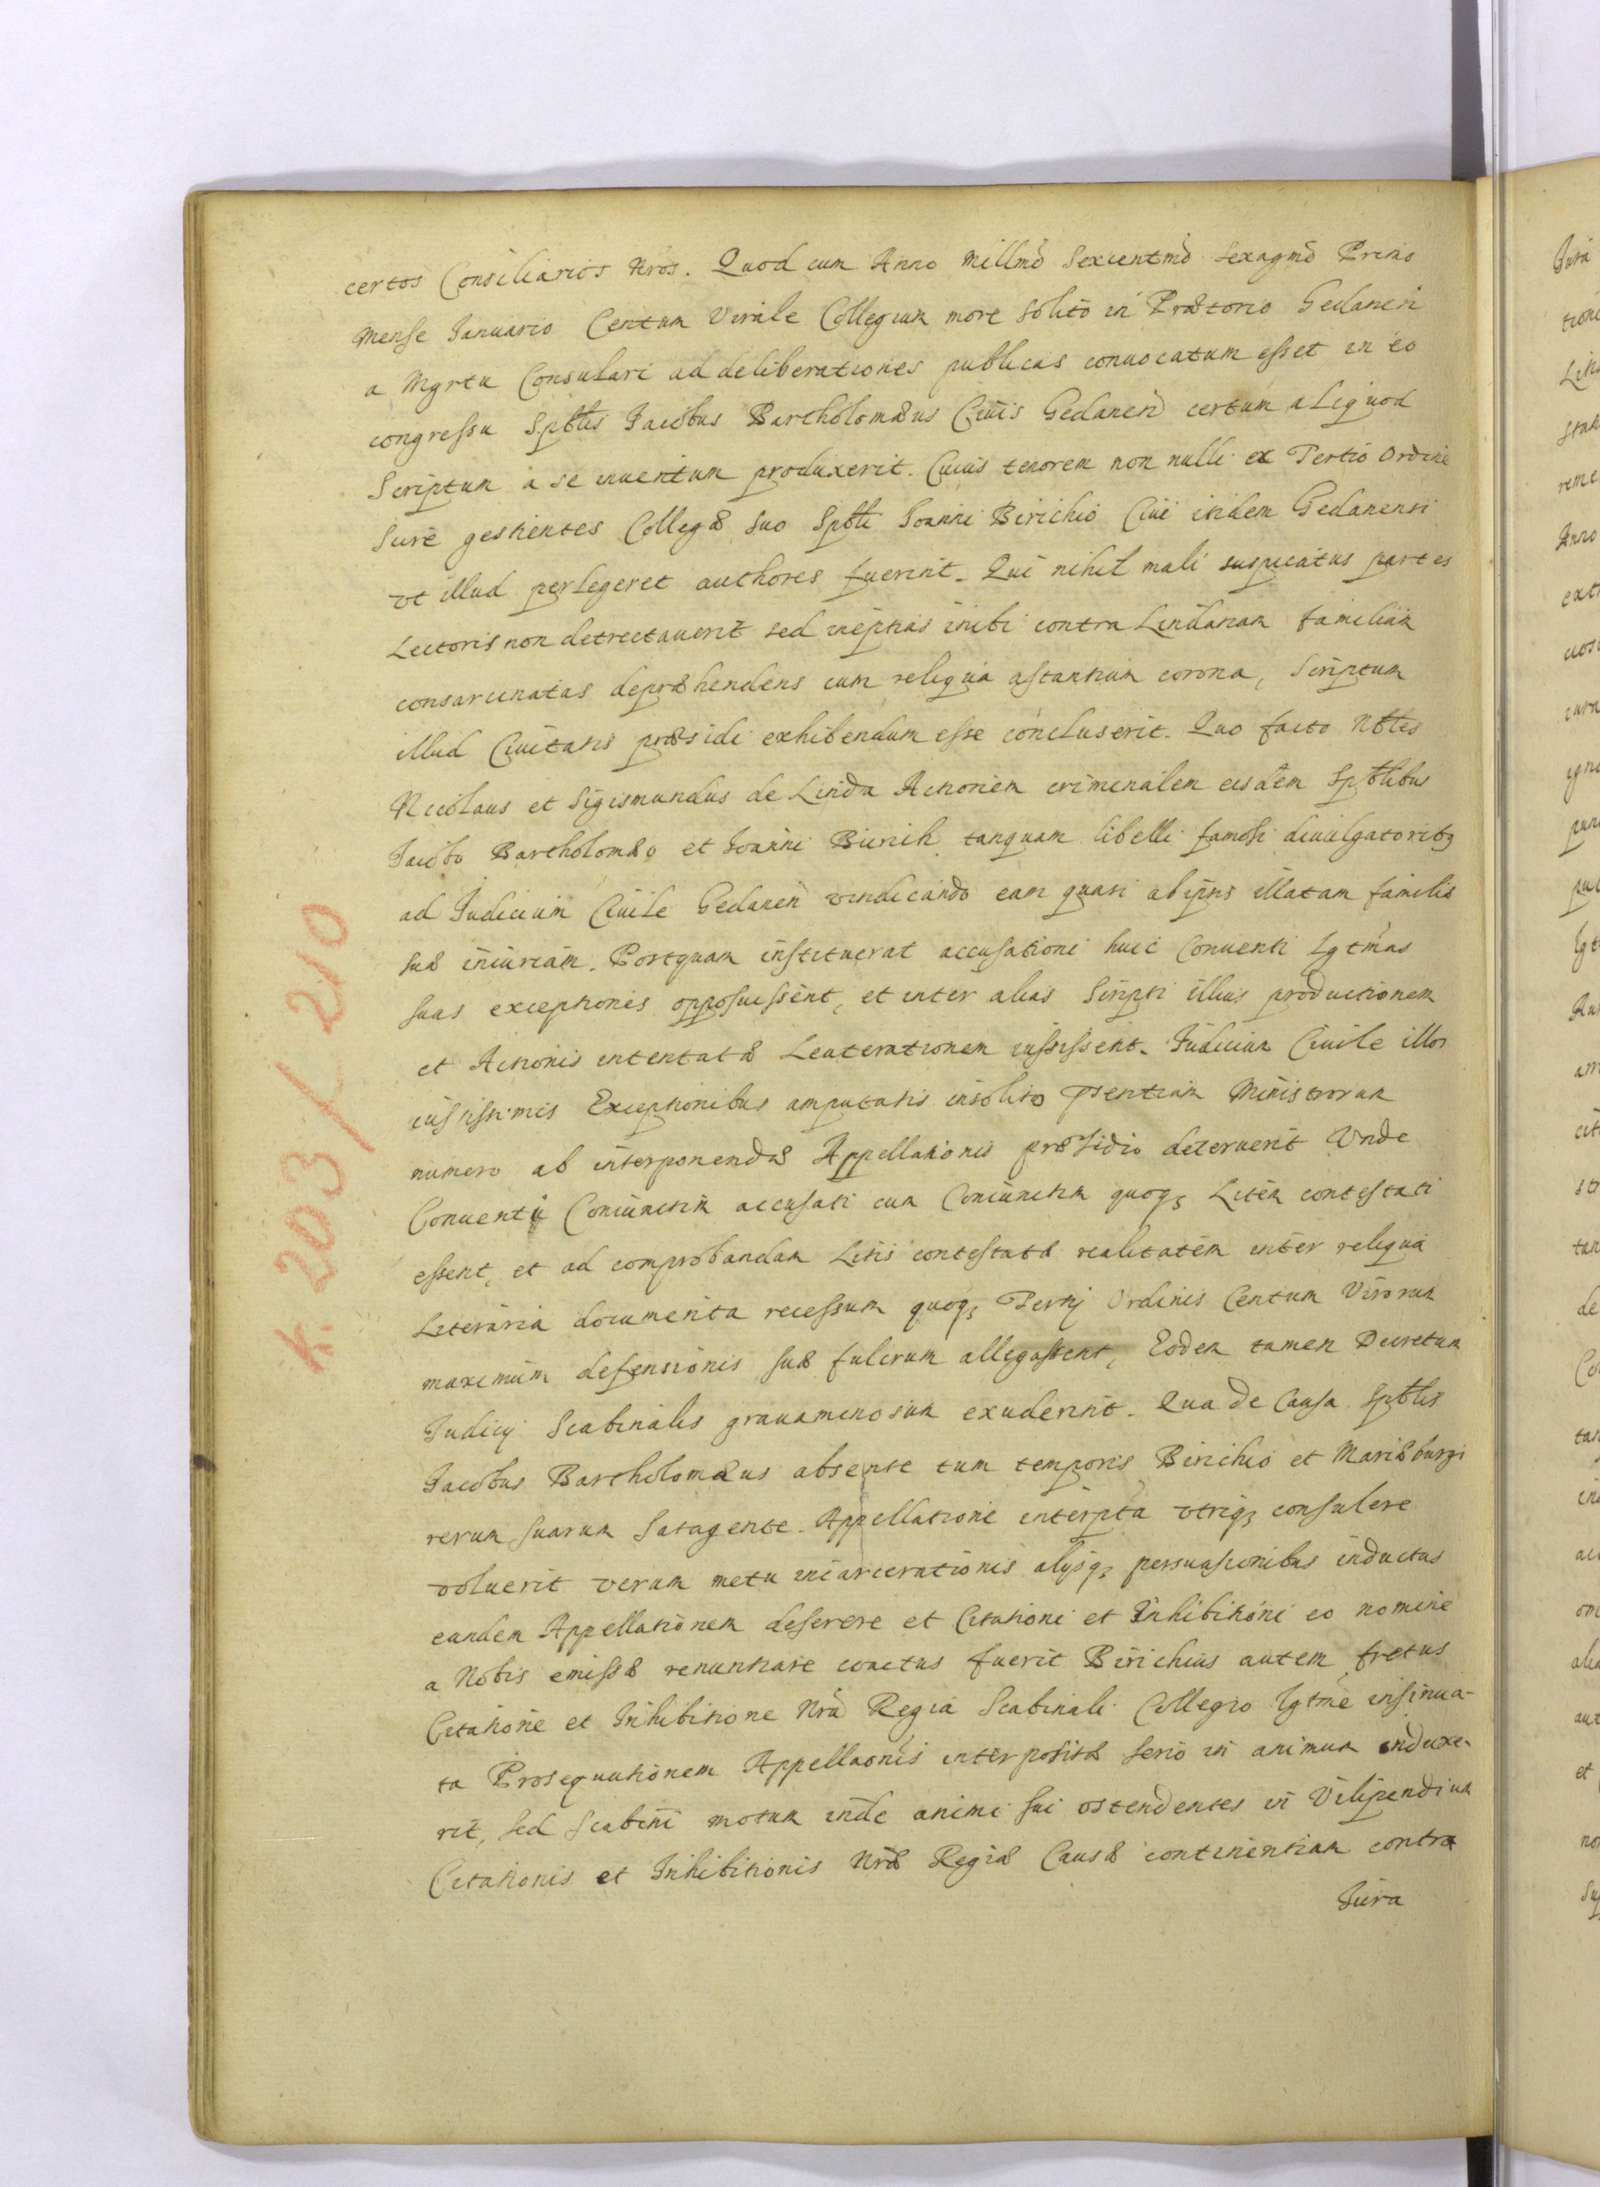 certos Consiliarios nros. Quod cum Anno Millmo Sexcentmo Sexagmo Primo
Mense Ianuario Centum Virale Collegium more solito in Prætorio Gedanen
a Mgrtu Consulari ad deliberationes publicas conuocatum esset in eo
congressu Spbtlis Iacobus Bartholomæus Ciuis Gedanen certum aliquod
Scriptum a se inuentum produxerit. Cuius tenorem non nulli ex Tertio Ordine
Scire gestientes Collegæ suo Spbtli Ioanni Birichio Ciui itidem Gedanensi
vt illud perlegeret authores fuerint. Qui nihil mali suspicatus partes
Lectoris non detrectauerit sed ineptias inibi contra Lindanam familiam
consarcinatas depræhendens cum reliqua astantium corona, Scriptum
illud Ciuitatis præsidi exhibendum esse concluserit. Quo facto Nbtles
Nicolaus et Sigismundus de Linda Actionem criminalem eisdem Spbtlibus
Iacobo Bartholomæo et Ioanni Birich tanquam libelli famosi diuulgatoribq
ad Iudicium Ciuile Gedanen vindicando eam quasi ab ipsis illatam familiæ
suæ iniuriam. Postquam instituerat accusationi huic Conuenti Lgtmas
suas exceptiones opposuissent, et inter alias Scripti illius productionem
et Actionis intentatæ Leuterationem iussissent. Iudicium Ciuile illor
iustissimis Exceptionibus amputatis insolito psentium Ministrorum
numero ab interponendæ Appellationis præsidio deterruerit Vnde
Conuenti Coniunctim accusati cum Coniunctim quoq; Litem contestati
essent, et ad comprobandam Litis contestatæ realitatem inter reliqua
Literaria documenta recessum quoq; Tertij Ordinis Centum Virorum
maximum defensionis suæ fulcrum allegassent, Eodem tamen Decretum
Iudicij Scabinalis grauaminosum exuderint. Qua de Causa Spbtlis
Iacobus Bartholomæus absente tum temporis Birichio et Mariæburgi
rerum suarum Satagente. Appellatione interpta vtriq; consulere
voluerit verum metu incarcerationis alijsq; persuasionibus inductus
eandem Appellationem deserere et Citationi et Inhibitioni eo nomine
a Nobis emissæ renuntiare coactus fuerit Birichius autem fretus
Citatione et Inhibitione Nra Regia Scabinali Collegio lgtme insinua-
ta Prosequutionem Appellaonis interpositæ serio in animum induxe-
rit, sed Scabini motum inde animi sui ostendentes in Vilipendium
Citationis et Inhibitionis Nræ Regiæ Causæ continentiam contra
Iura
k. 203/210